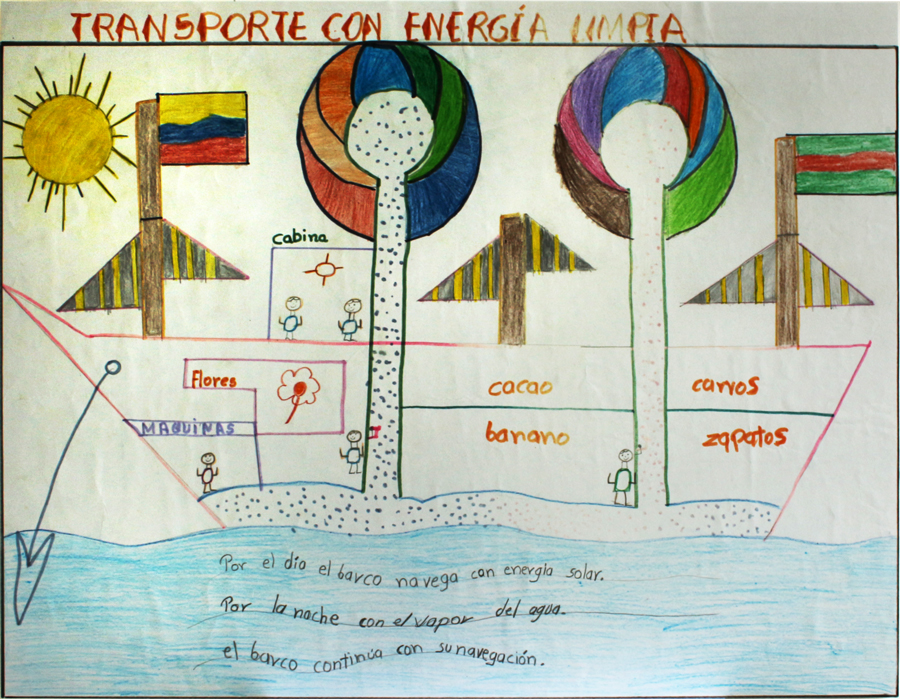 TRANSPORTE CON ENERGÍA LIMPIA
Cabina
Flores
MAQUINAS
cacao
banano
carros
zapatos
Por el día el barco navega con energía solar.
Por la noche con el vapor del agua.
el barco continúa con su navegación.